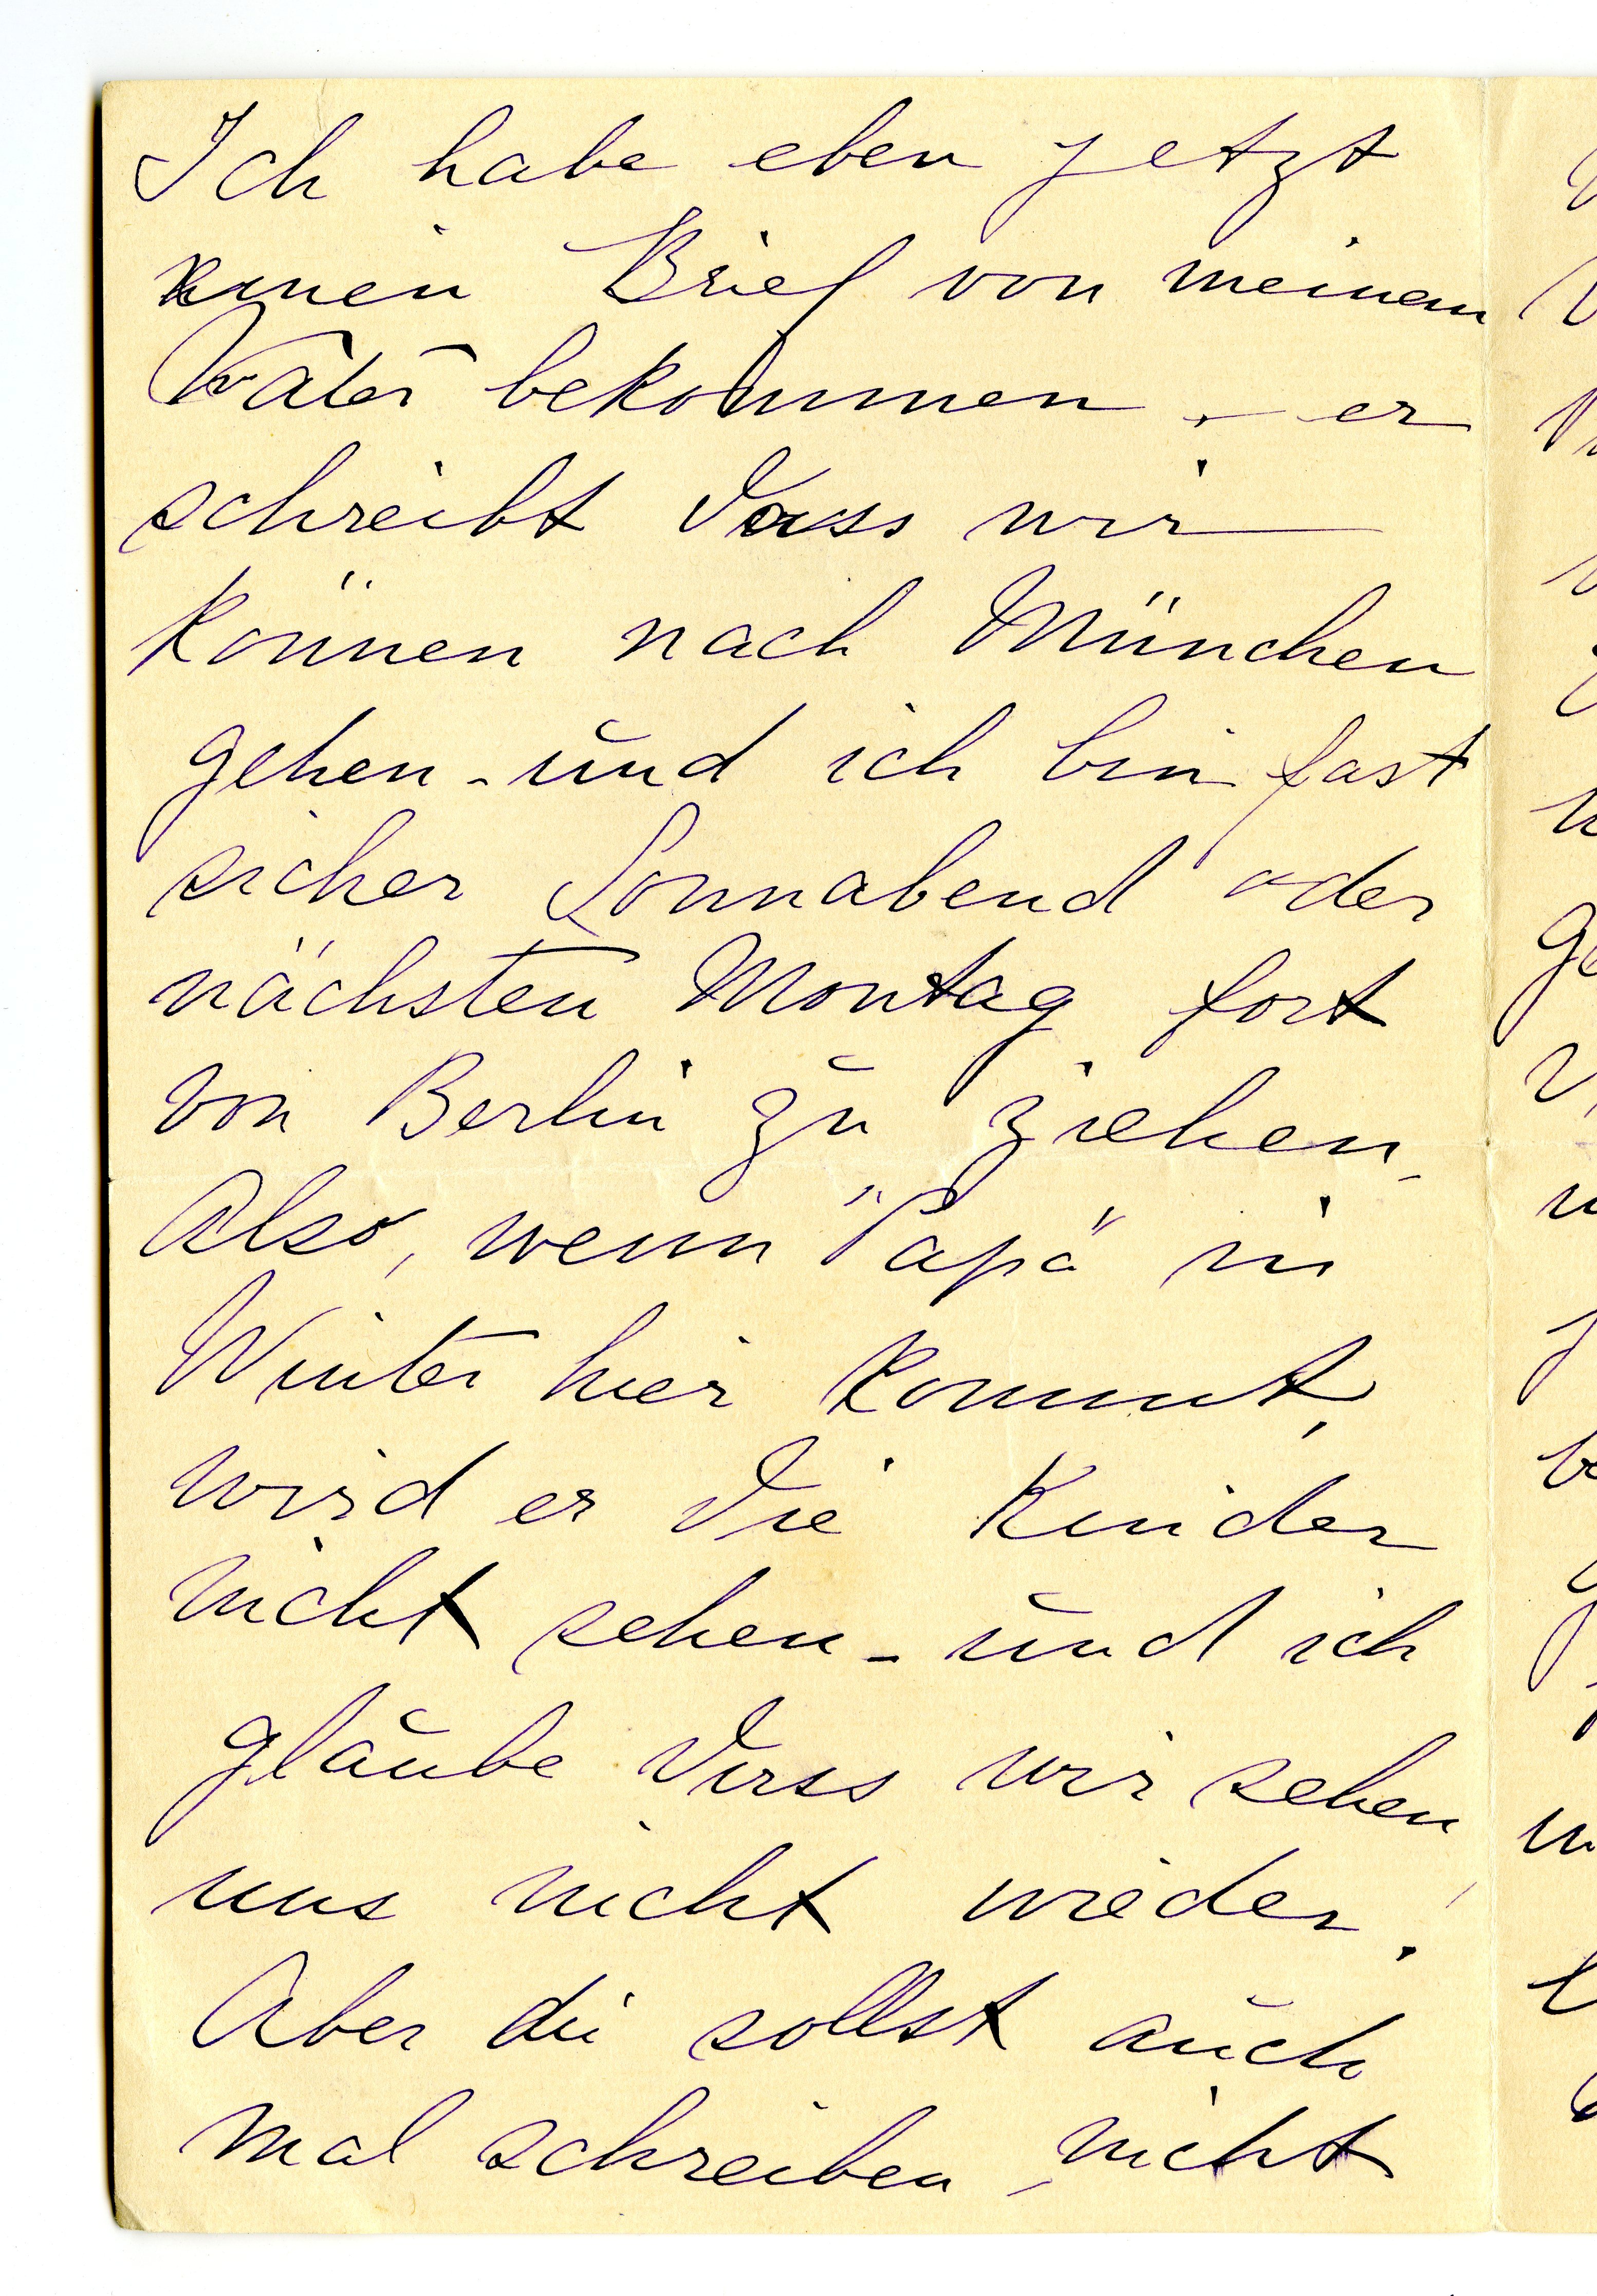 Ich habe eben jetzt
einen Brief von meinem
Vater bekommen, - er
schreibt dass wir
können nach München
gehen - und ich bin fast
sicher Sonnabend oder
nächsten Montag fort
von Berlin zu ziehen -
Also, wenn "Papa" in
Winter hier kommt,
wird er die Kinder
nicht sehen - und ich
glaube dass wir sehen
uns nicht wieder!
Aber du sollst auch
mal schreiben, nicht